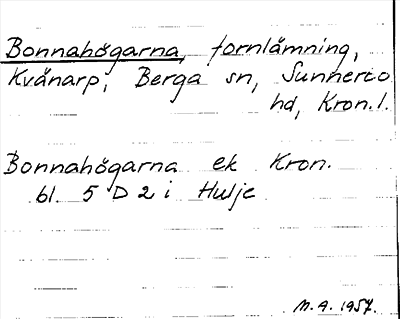 Bonnahögarna, fornlämning,
Kvånarp, Berga sn, Sunnerbo
hd, Kron.l.
Bonnahögarna ek Kron.
bl. 5 D 2 i Hulje
M.A. 1957.